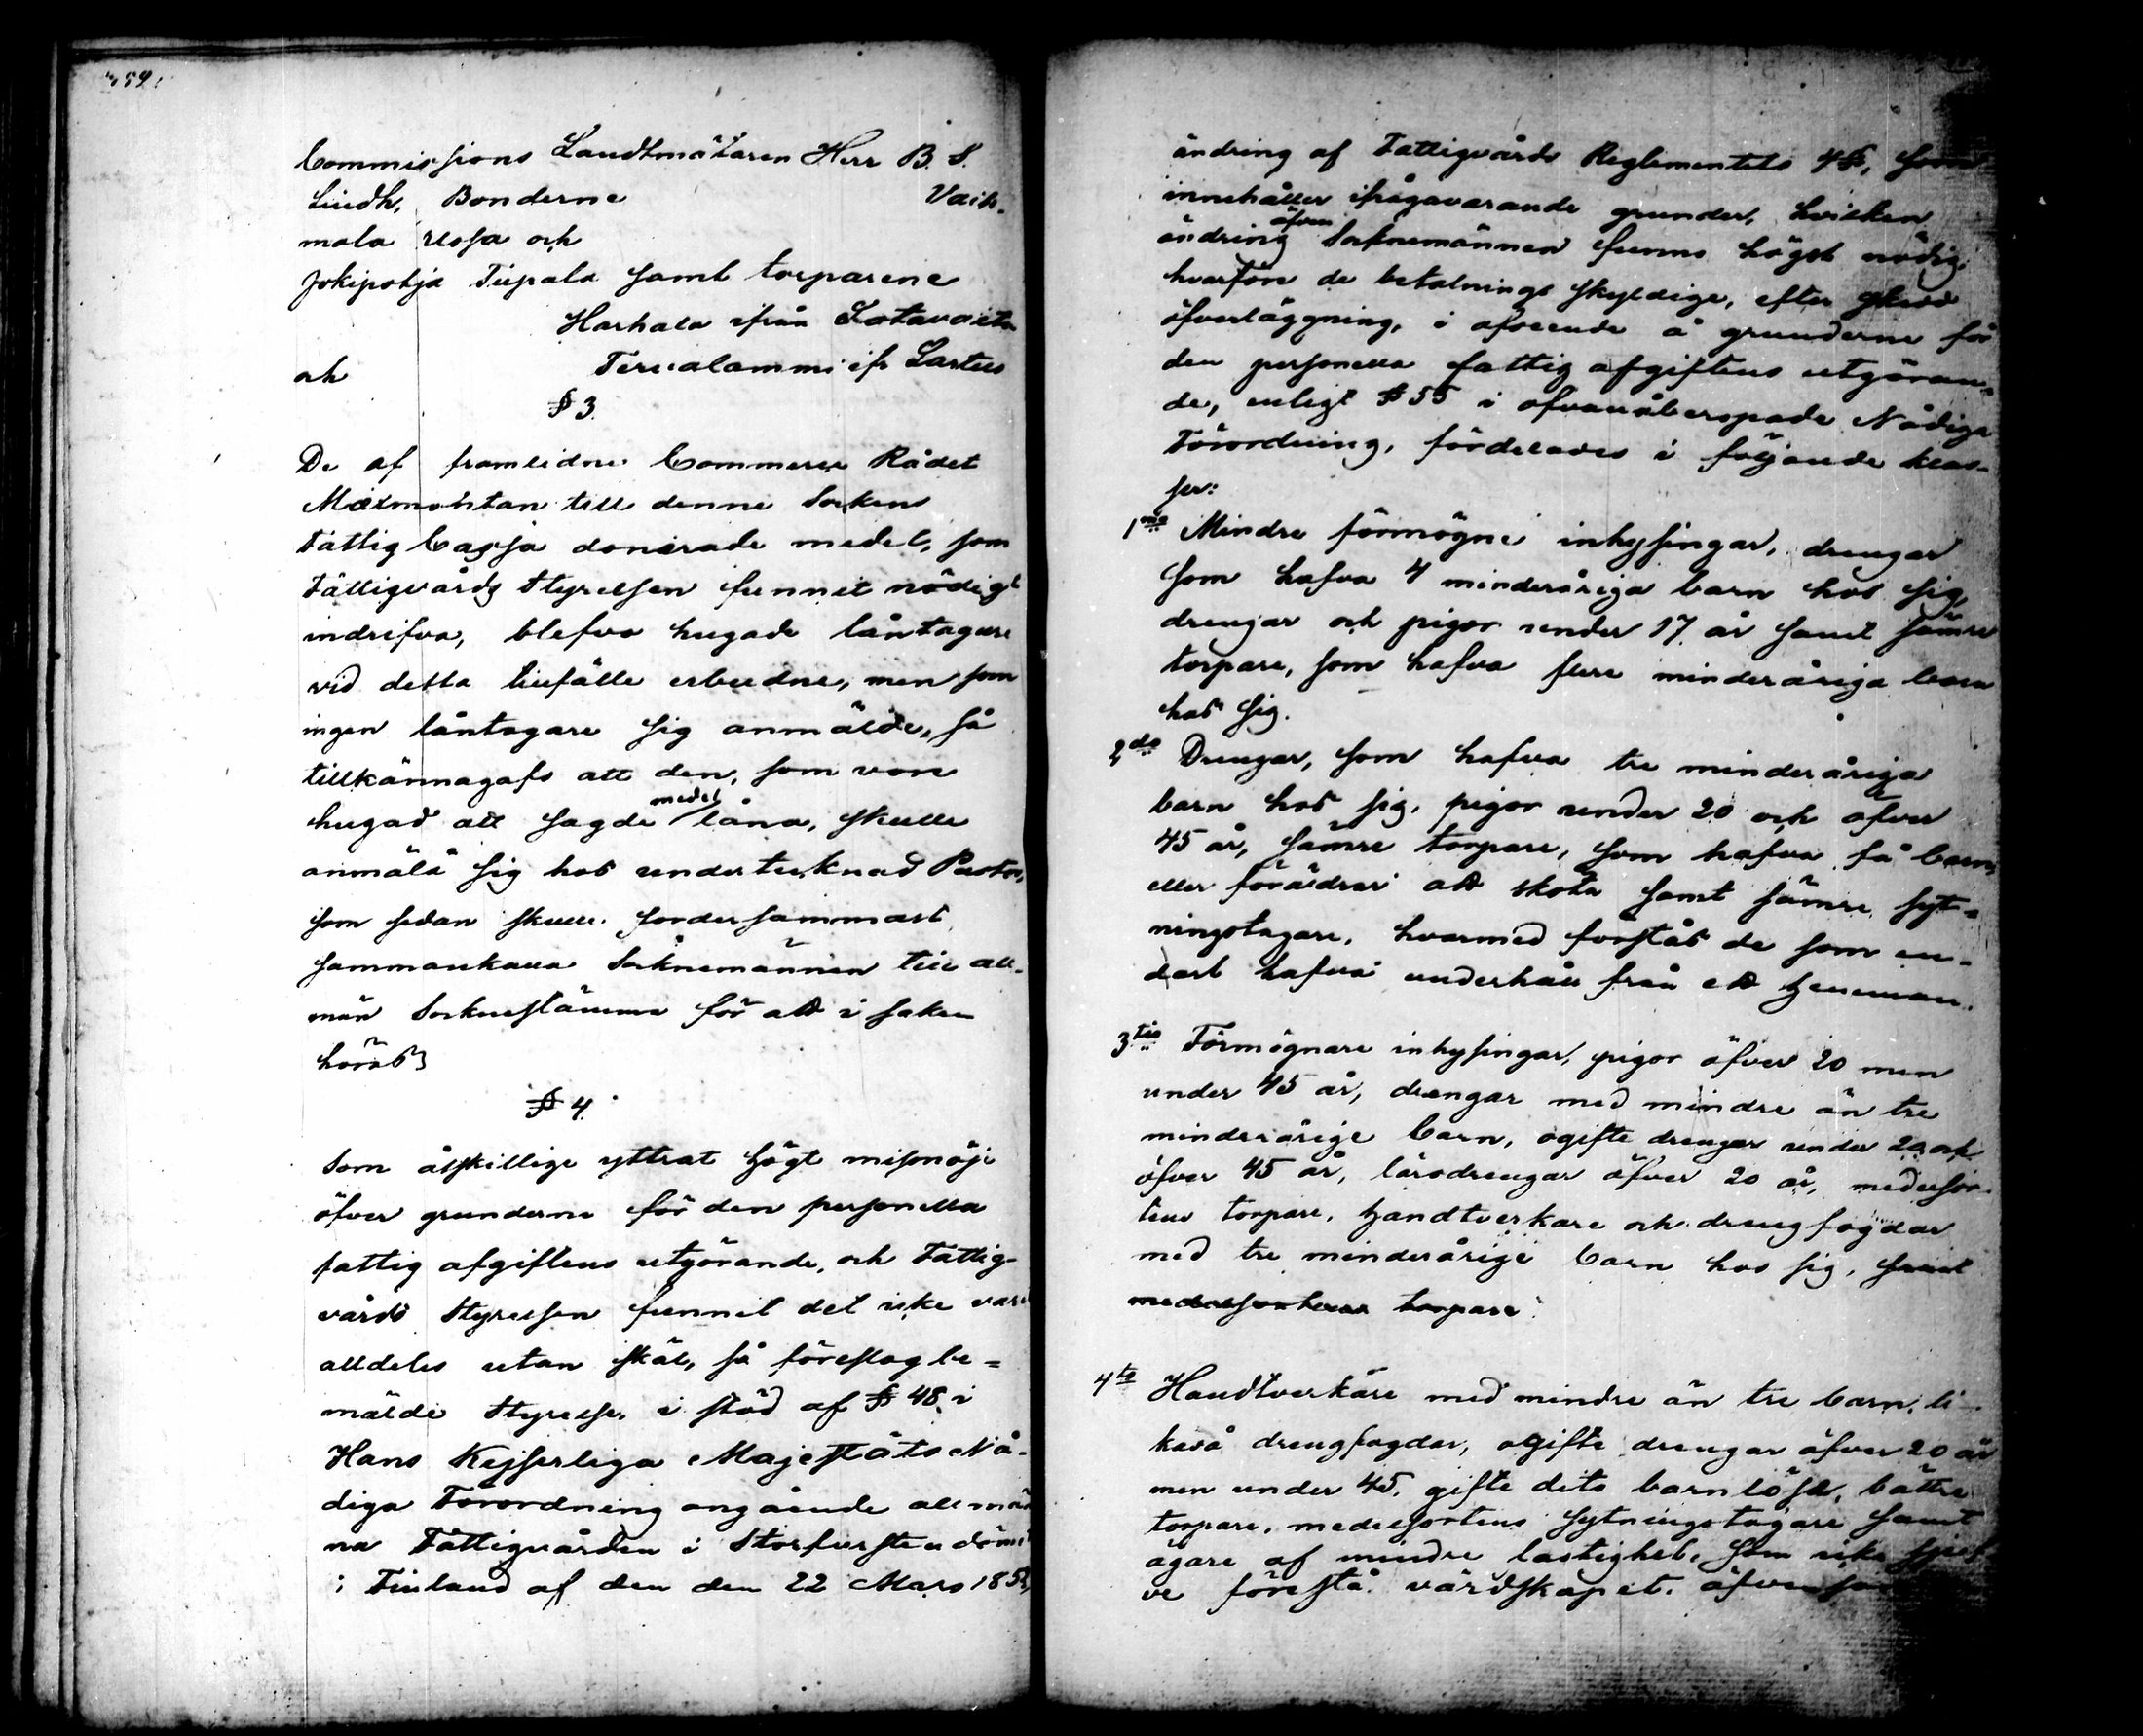 Commissions Landtmätaren Herr B. S.
Lindh, Bonderne Vaih-
mala Ussa och
Jokipohja Tiepala samt torparene
Harhala ifrån Latava
och Tervalammi ifr
§ 3.
De af framlidne Commerce Rådet
Malmohtan till denne Sockens
Fattig Cassa donerade medel, som
Fattigvårds Styrelsen funnit nödigt
indrifva, blefvo hugade låntagare
vid detta tillfälle erbudne, men som
ingen låntagare sig anmälde, så
tillkännagafs att den, som vore
medel
hugad att sagde låna, skulle
anmäla sig hos undertecknad Pastor,
som sedan skulle fordersammast
sammankalla Socknemännen till all-
män Socknestämma för att i saken
höras
§ 4.
Som åtskillige yttrat högt misnöje
öfver grunderne för den personella
fattig afgiftens utgörande, och Fattig-
vårds Styrelsen funnit det icke vara
alldeles utan skäl, så föreslog be=
mälde Styrelse, i stöd af § 48 i
Hans Kejserliga Majestäts Nå-
diga Förordning angående allmän
na Fattigvården i Storfurstendömet
i Finland af den den 22 Mars 1852,
ändring af Fattigvårds Reglementets 4§, som
innehåller ifrågavarande grunder, hvilken
äfven
ändring Socknemännen funno högst nödig,
hvarföre de betalnings skyldige, efter skedd
öfverläggning, i afseende å grunderne för
den personella fattig afgiftens utgöran-
de, enligt § 55 i ofvanåberopade Nådiga
Förordning, fördelades i följande klas-
ser:
1mo Mindre förmögne inhysingar, drengar
som hafva 4 minderåriga barn hos sig,
drengar och pigor under 17 år samt sämre
torpare, som hafva flere minderåriga barn
hos sig.
2do Drengar, som hafva tre minderåriga
barn hos sig, pigor under 20 och öfver
45 år, sämre torpare, som hafva få barn,
eller föräldrar att sköta samt sämre syt=
ningstagare, hvarmed förstås de som en-
dast hafva underhåll från ett hemman.
3tio Förmögnare inhysingar, pigor öfver 20 men
under 45 år, drengar med mindre än tre
minderårige barn, ogifte drengar under 20 och
öfver 45 år, lärodrengar öfver 20 år, medelsor-
tens torpare, handtverkare och drengfogdar
med tre minderårige barn hos sig, samt
medelsortens torpare.
4to Handtverkare med mindre än tre barn, li-
kaså drengfogdar, ogifte drengar öfver 20 år
men under 45, gifte dito barnlöse, bättre
torpare, medelsortens sytningstagare samt
ägare af mindre lägenhet, som icke sjelf
ve förestå värdskapet, äfven